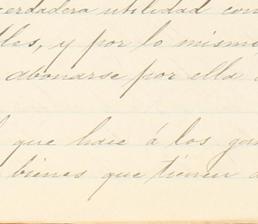 verdadera utilidad con
y por lo mismo
abonarse por ella
que hace á los ga
bienes que tienen